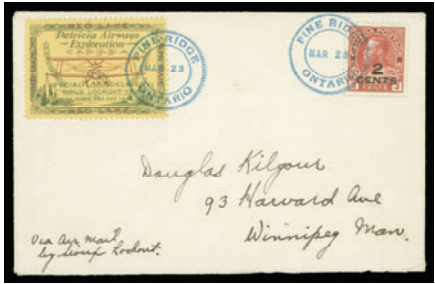 RED LAKE
Patricia Airways
-Exploration
SPECIAL AIR DELIVERY
SIOUX LOOKOUT
RED LAKE
PINE RIDGE
MAR 23
ONTARIO
PINE RIDGE
MAR 23
ONTARIO
2
CENTS
Douglas Kilgour
93 Harvard Ave
Winnipeg Man.
Via Air Mail
by Sioux Lookout.